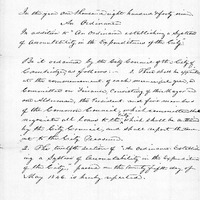 In the year one thousand eight hundred & forty nine
An Ordinance
In addition to "An Ordinance establishing a System
of Accountability in the Expenditures of the City."
Be it ordained by the City Council of the City of
Cambridge, as follows: 1. There shall be appointed
at the commencement of each municipal year, a
Committee on Finance, consisting of the Mayor and
one Alderman, the President and five members
of the Common Council, which committee shall
negotiate all loans to the City, which shall be authorized
by the City Council, and shall report the same
to the City
2. The twelfth section of "An Ordinance establish-
ing a System of Accountability in the expenditures
of the City," passed on the twenty fifth day of
May 1846 is hereby repealed.